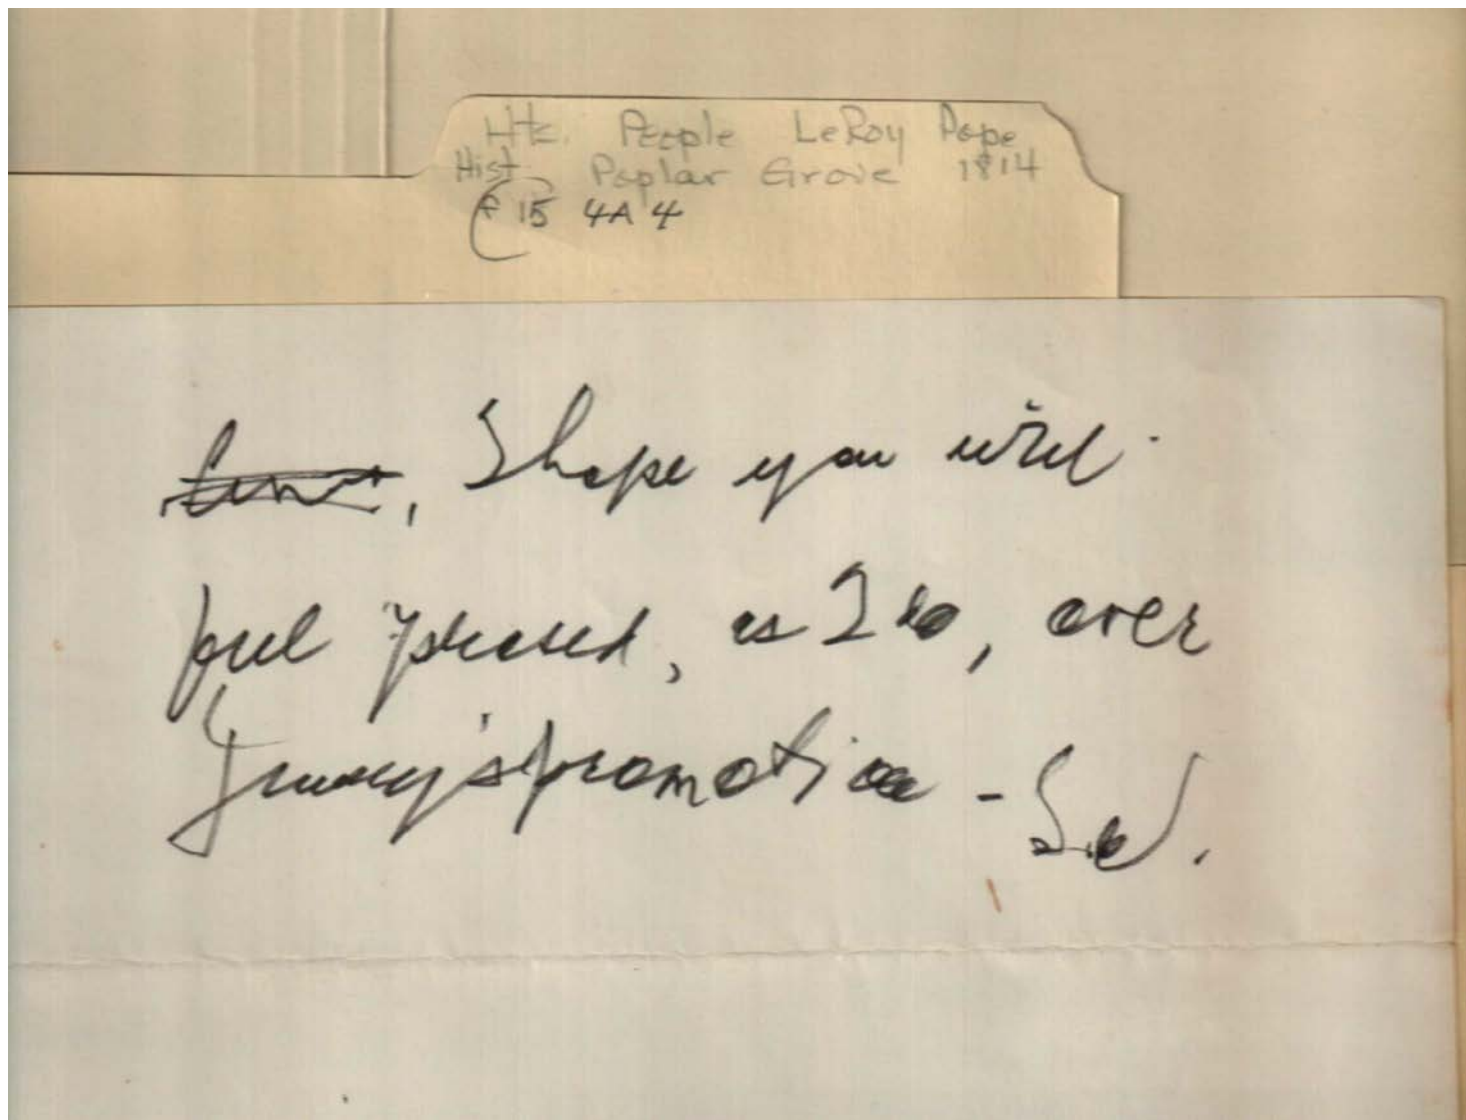 Hts. People LeRoy Pope
Hist Poplar Grove 1814
F 15 4A 4
, I hope you will
feel pleased, as I do, over
promotion -